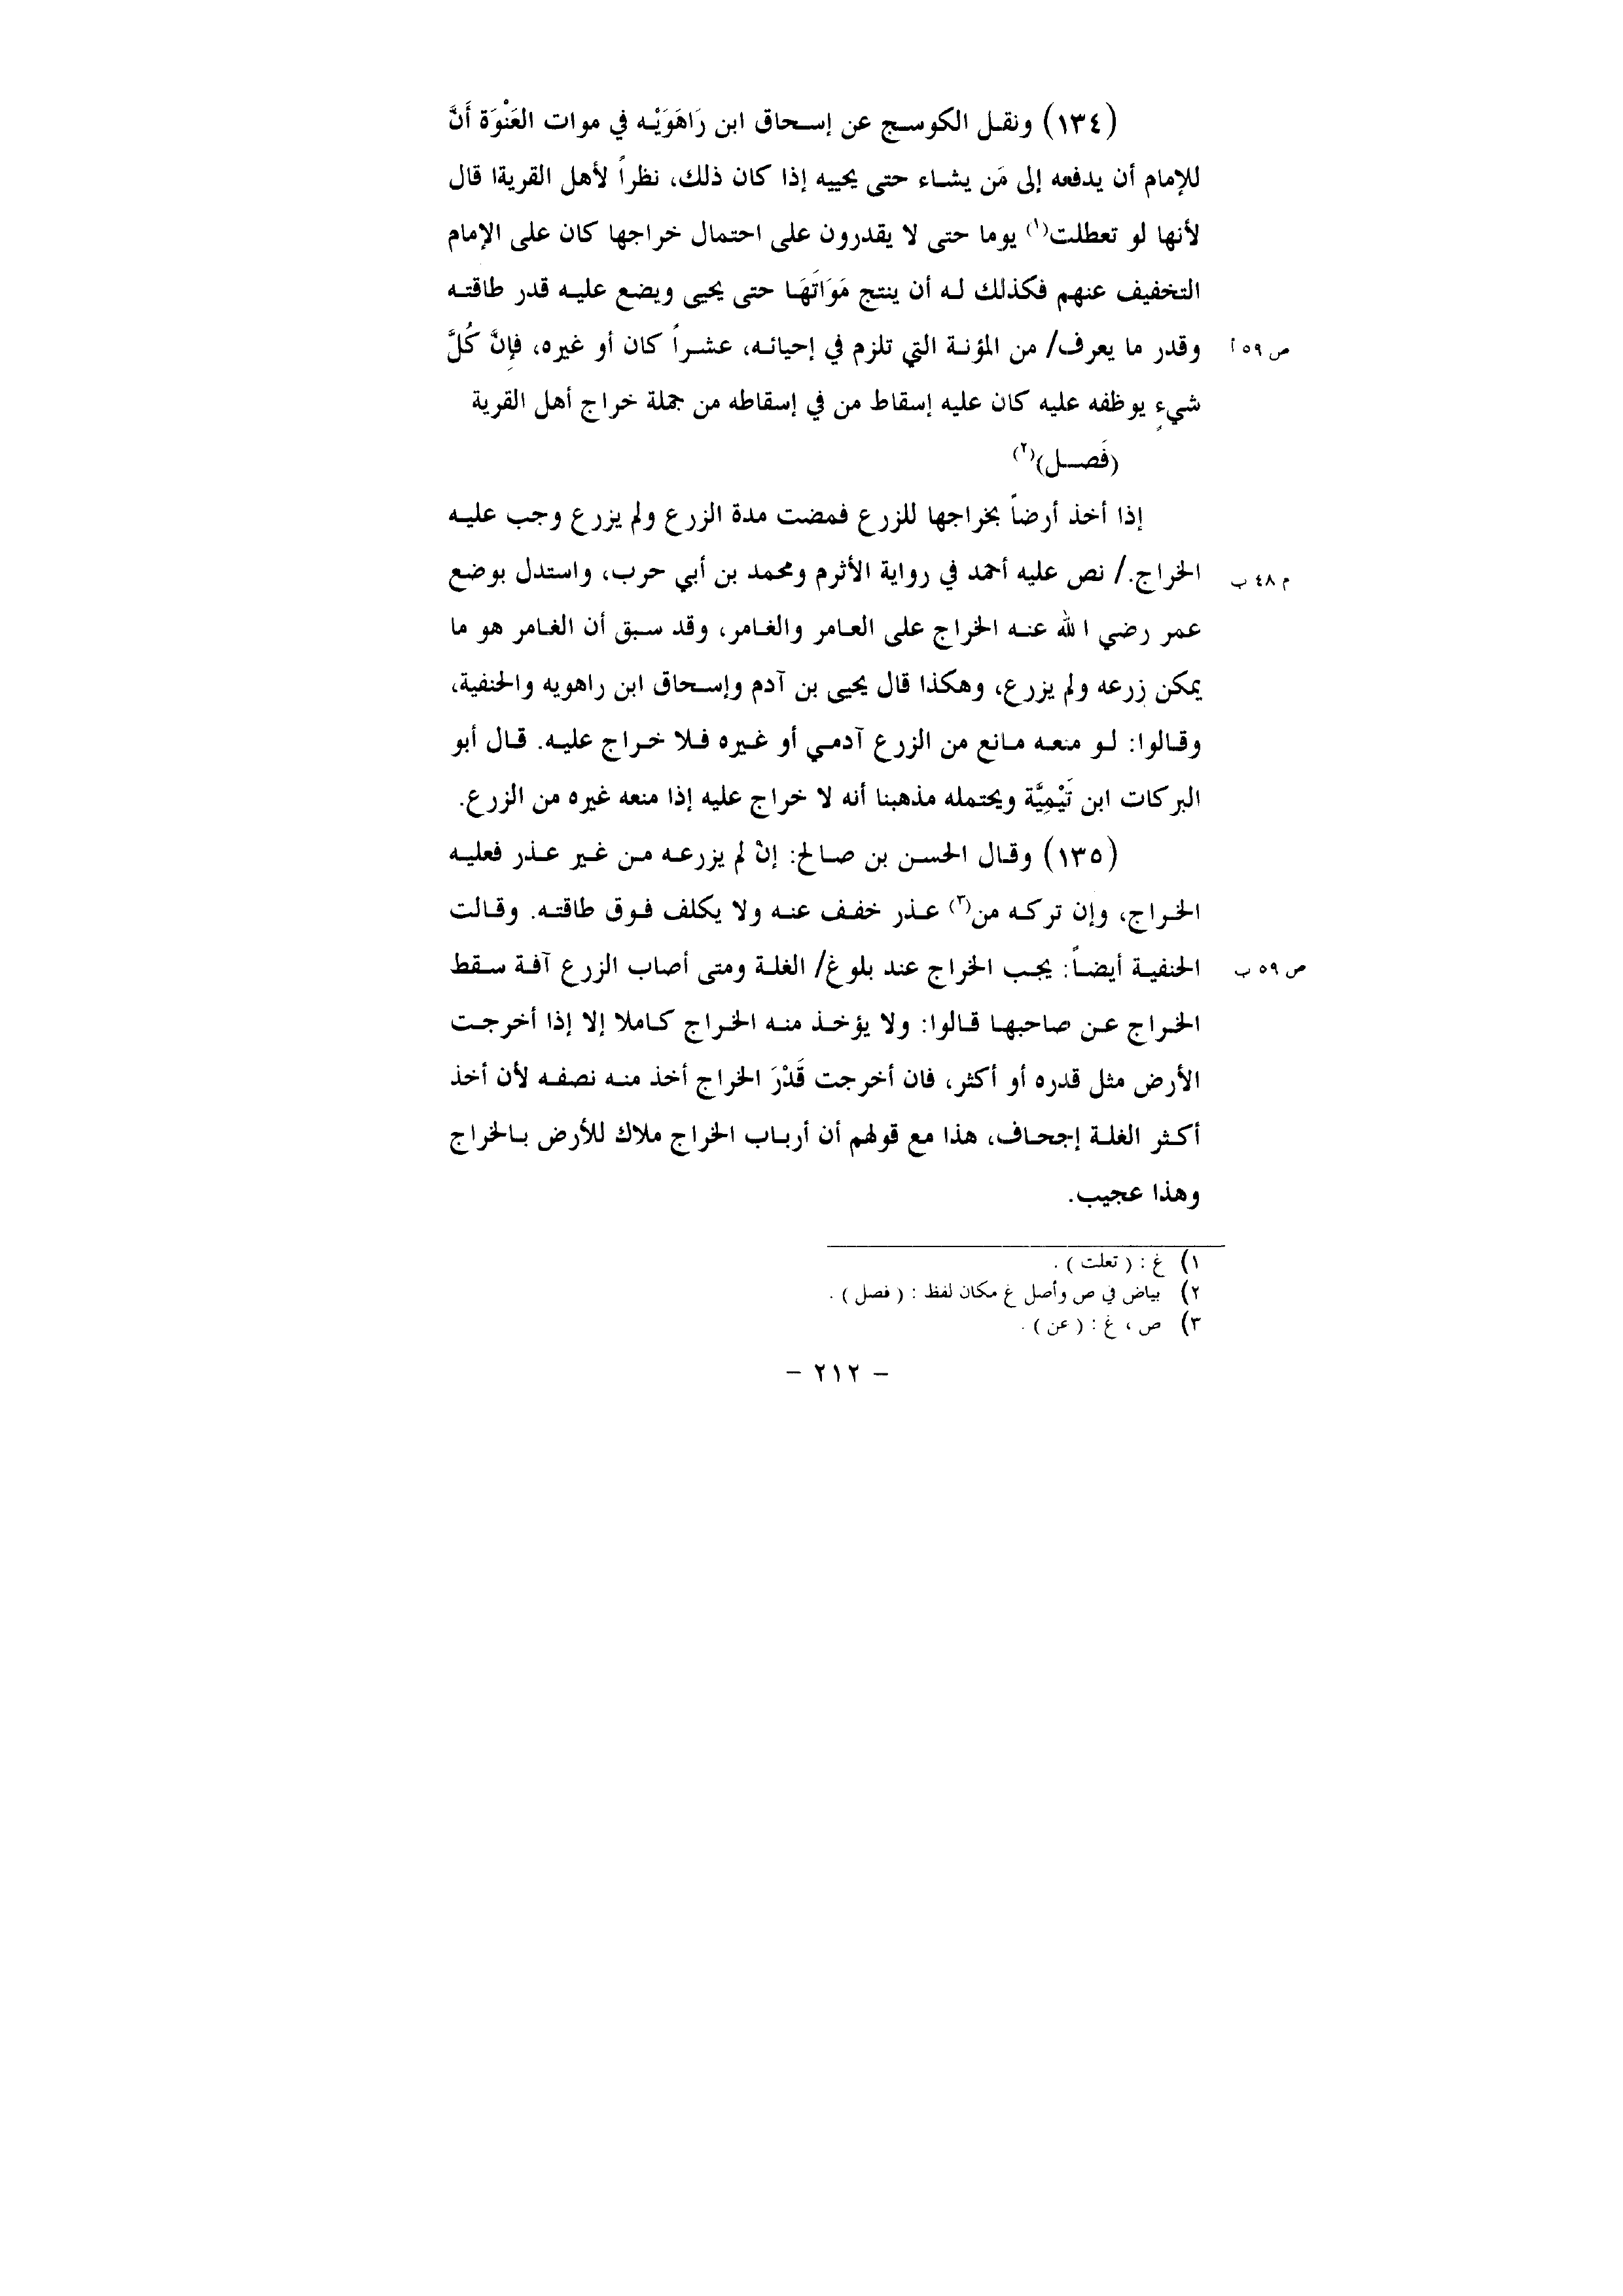 (١٣٤) ونقل الكوسج عن إسحاق ابن رَاهَوَيْه في موات العَنْوَة أَنَّ
للإمام أن يدفعه إلى مَن يشاء حتى يحييه إذا كان ذلك، نظراً لأهل القريةا قال
لأنها لو تعطلت(١) يوما حتى لا يقدرون على احتمال خراجها كان على الإمام
التخفيف عنهم فكذلك له أن ينتج مَوَاتَهَا حتى يحيى ويضع عليه قدر طاقته
وقدر ما يعرف/ من المؤنة التي تلزم في إحيائه، عشراً كان أو غيره، فإِنَّ كُلَّ ص ٥٩ أ
شيءٍ يوظفه عليه كان عليه إسقاط من في إسقاطه من جملة خراج أهل القرية
(فَصل)(٢)
إذا أخذ أرضاً بخراجها للزرع فمضت مدة الزرع ولم يزرع وجب عليه
الخراج./ نص عليه أحمد في رواية الأثرم ومحمد بن أبي حرب، واستدل بوضع م ٤٨ ب
عمر رضي الله عنه الخراج على العامر والغامر، وقد سبق أن الغامر هو ما
يمكن زرعه ولم يزرع، وهكذا قال يحيى بن آدم وإسحاق ابن راهويه والحنفية،
وقالوا: لو منعه مانع من الزرع آدمي أو غيره فلا خراج عليه. قال أبو
البركات ابن تَيْمِيَّة ويحتمله مذهبنا أنه لا خراج عليه إذا منعه غيره من الزرع.
(١٣٥) وقال الحسن بن صالح: إنْ لم يزرعه من غير عذر فعليه
الخراج، وإن تركه من(٣) عذر خفف عنه ولا يكلف فوق طاقته. وقالت
الحنفية أيضاً: يجب الخراج عند بلوغ/ الغلة ومتى أصاب الزرع آفة سقط ص ٥٩ ب
الخراج عن صاحبها قالوا: ولا يؤخذ منه الخراج كاملا إلا إذا أخرجت
الأرض مثل قدره أو أكثر، فان أخرجت قَدْرَ الخراج أخذ منه نصفه لأن أخذ
أكثر الغلة إجحاف، هذا مع قولهم أن أرباب الخراج ملاك للأرض بالخراج
وهذا عجيب.
١) غ : ( تعلت ) .
٢) بياض في ص وأصل غ مكان لفظ : ( فصل ) .
٣) ص ، غ : ( عن ) .
– ٢١٢ –